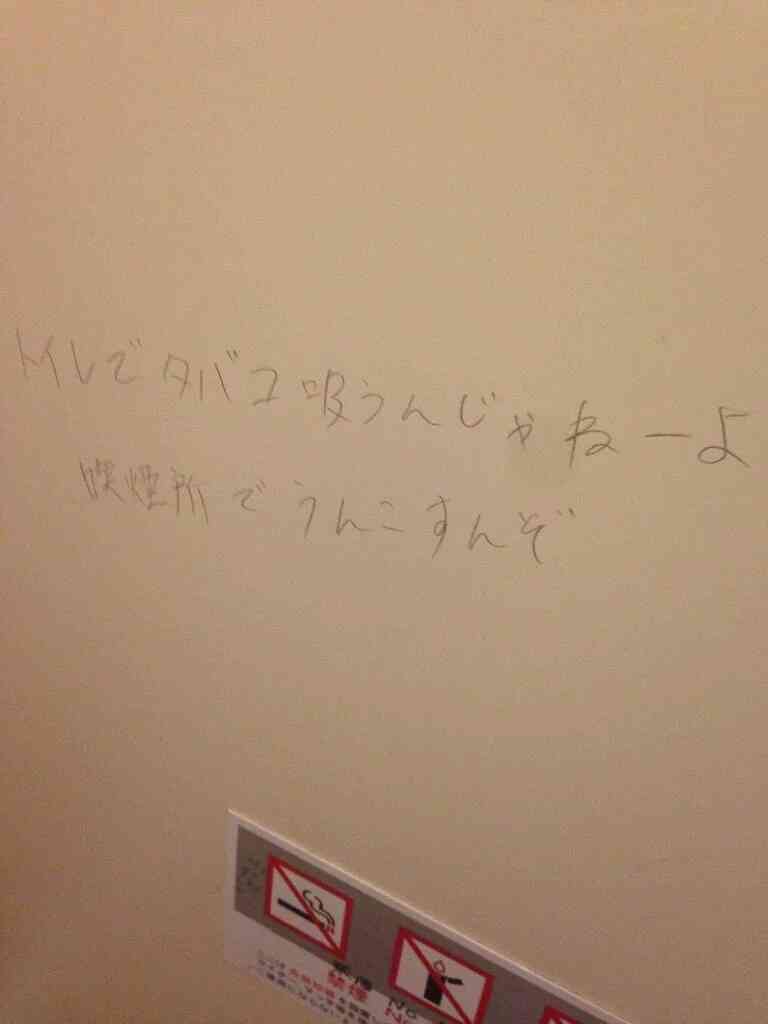 トイレでタバコ吸うんじゃねーよ
喫煙所でうんこすんぞ
禁煙 No